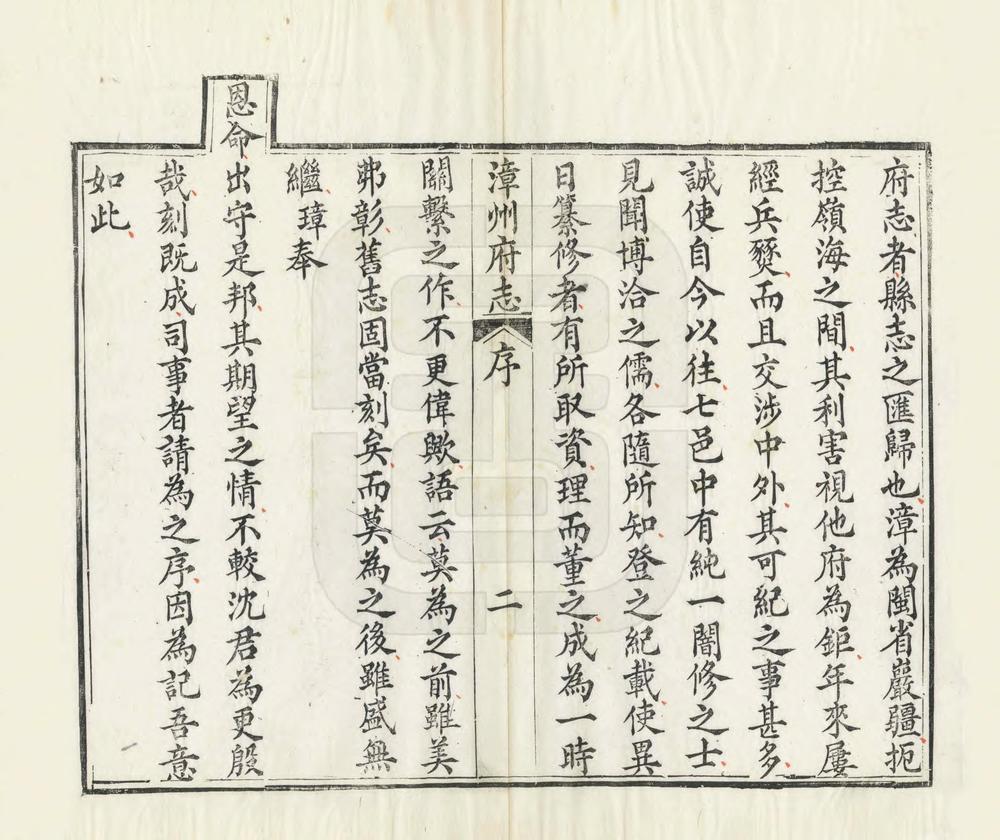 府志者縣志之匯歸也漳為閩省巖疆扼
控嶺海之間其利害視他府為鉅年來屢
經兵燹而且交涉中外其可紀之事甚多
誠使自今以往七邑中有純一闇修之士
見聞博洽之儒各隨所知登之紀載使異
日纂修者有所取資理而董之成為一時
漳州府志 序 二
關繫之作不更偉歟語云莫為之前雖美
弗彰舊志固當刻矣而莫為之後雖盛無
繼璋奉
恩命出守是邦其期望之情不較沈君為更殷
哉刻既成司事者請為之序因為記吾意
如此